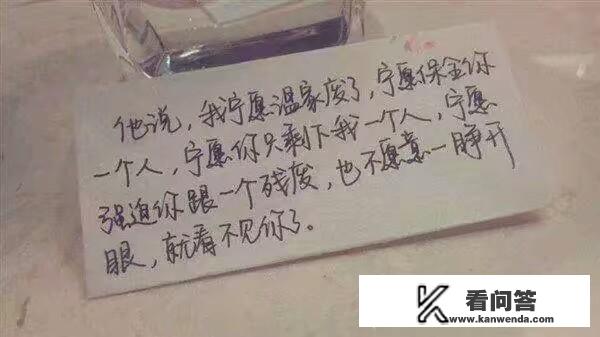 他说，我宁愿温家废了，宁愿保全你
一个人，宁愿你只剩下我一个人，宁愿
强迫你跟一个残废，也不愿意一睁开
眼，就看不见你了。
K 看问答
www.kanwenda.com